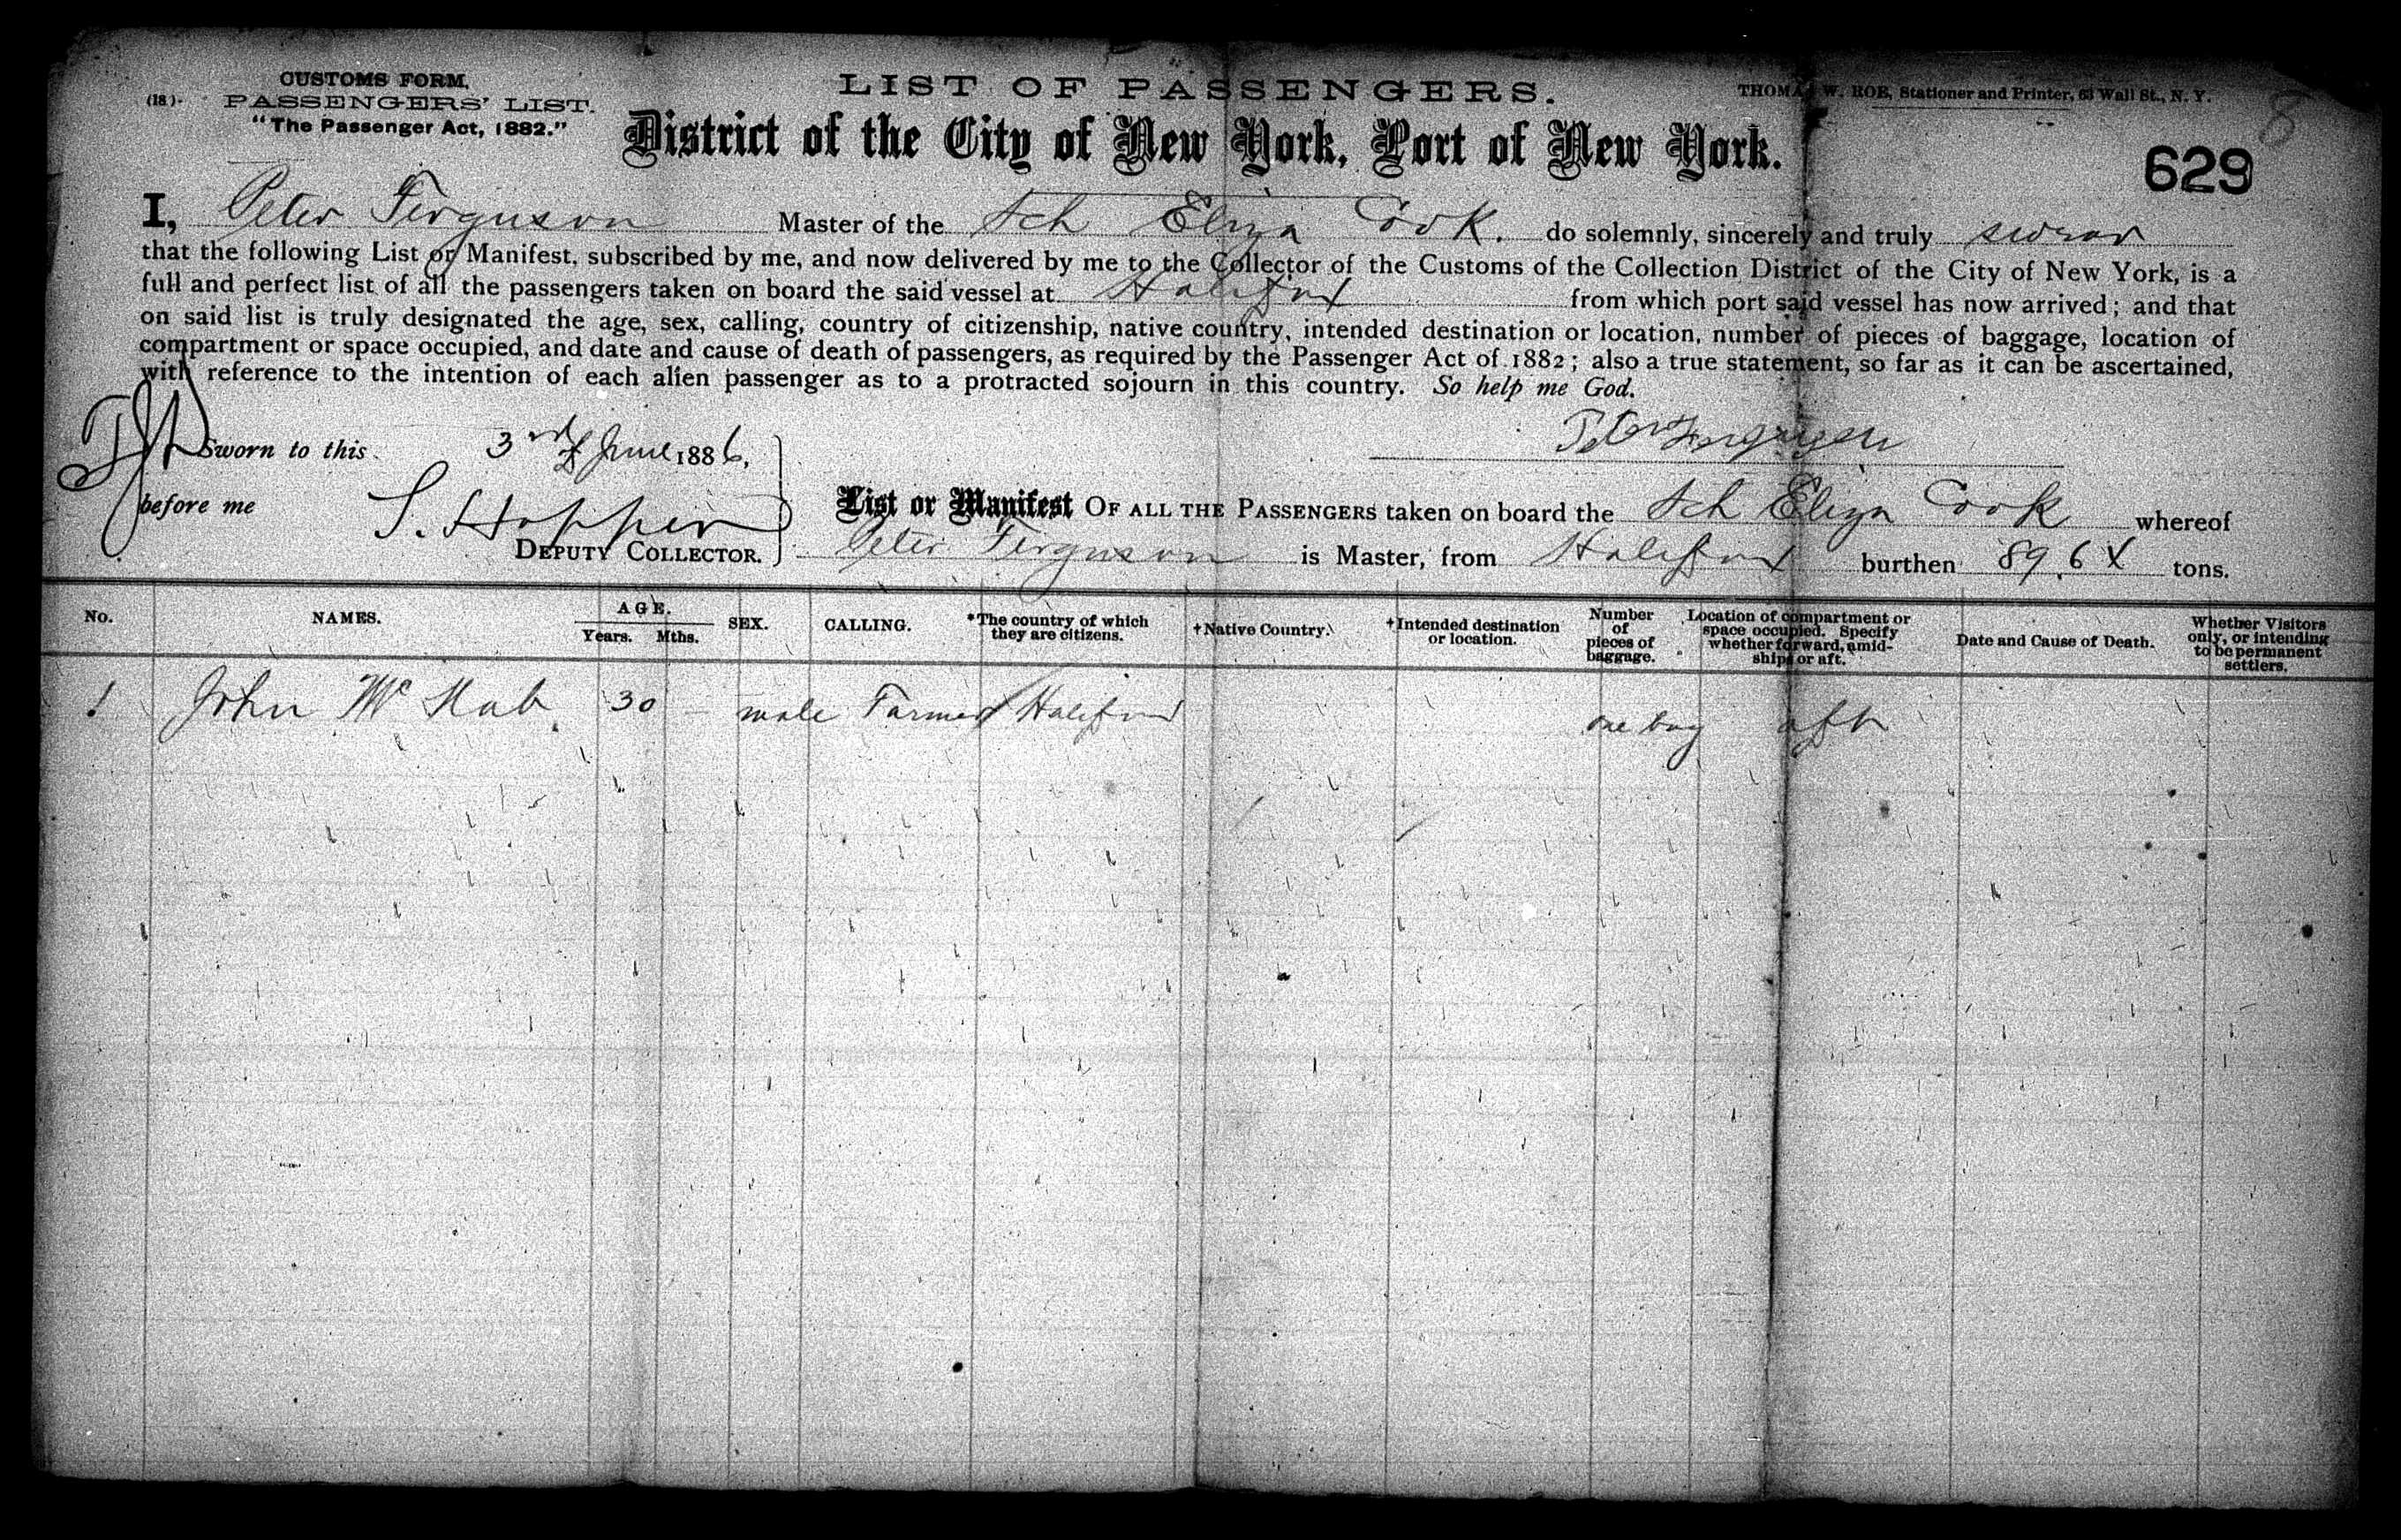 CUSTOMS FORM.
(18). PASSENGERS' LIST.
"The Passenger Act, 1882."
LIST OF PASSENGERS.
THOMAS W. ROE, Stationer and Printer, 63 Wall St., N. Y.
8
District of the City of New York, Port of New York.
629
I, Peter Ferguson Master of the Sch Eliza Cook. do solemnly, sincerely and truly swear
that the following List or Manifest, subscribed by me, and now delivered by me to the Collector of the Customs of the Collection District of the City of New York, is a
full and perfect list of all the passengers taken on board the said vessel at Halifax from which port said vessel has now arrived; and that
on said list is truly designated the age, sex, calling, country of citizenship, native country, intended destination or location, number of pieces of baggage, location of
compartment or space occupied, and date and cause of death of passengers, as required by the Passenger Act of 1882; also a true statement, so far as it can be ascertained,
with reference to the intention of each alien passenger as to a protracted sojourn in this country. So help me God.
Sworn to this 3rd of June 1886,
Peter Ferguson
before me
DEPUTY COLLECTOR.
List or Manifest OF ALL THE PASSENGERS taken on board the Sch Eliza Cook whereof
Peter Ferguson is Master, from Halifax burthen 89.6 tons.
No. NAMES. AGE. Years. Mths. SEX. CALLING. *The country of which they are citizens. †Native Country. †Intended destination or location. Number of pieces of baggage. Location of compartment or space occupied. Specify whether forward, amidships or aft. Date and Cause of Death. Whether Visitors only, or intending to be permanent settlers.
1 John McNab 30 male Farmer Halifax one bag aft